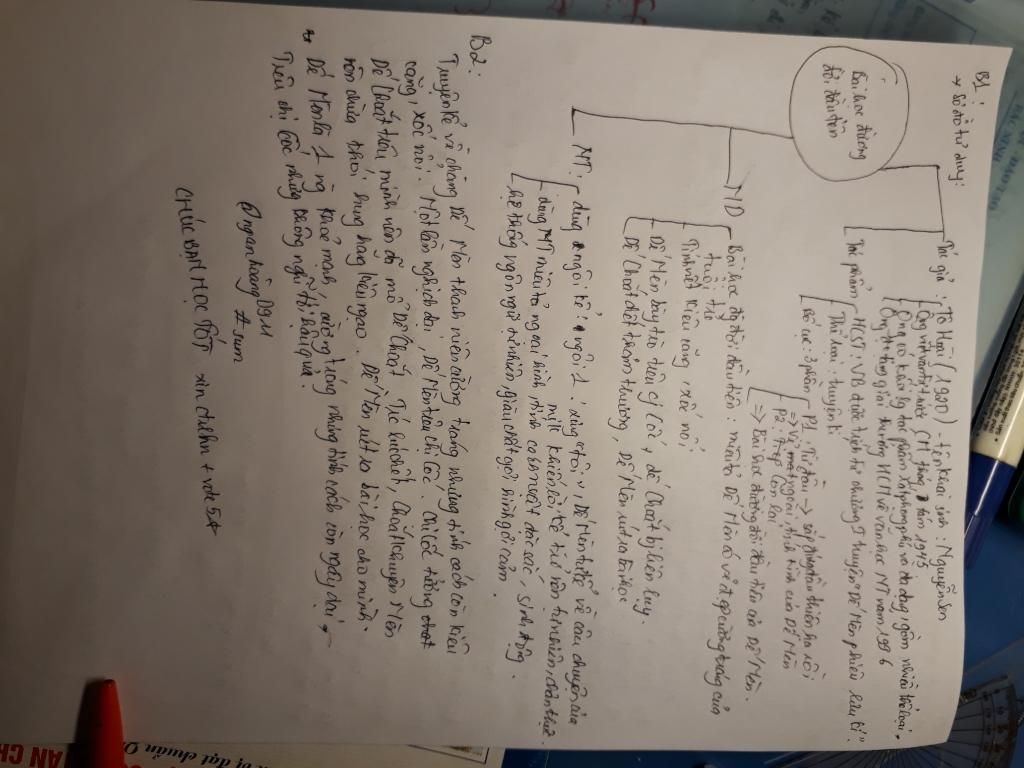 B1:
→ Sơ đồ tư duy:
Bài học đường
đời đầu tiên
Tác giả: Tô Hoài (1920) - tên khai sinh: Nguyễn Sen
Ông viết văn từ trước CM tháng 8 năm 1945
Ông có khối lg tác phẩm phong phú và đa dạng, gồm nhiều thể loại.
Ông tặng giải thưởng HCM về văn học NT năm 1996
Tác phẩm
HCST: VB được trích từ chương I truyện Dế Mèn phiêu lưu kí".
Thể loại: truyện kí
Bố cục: 2 phần
P1: Từ đầu → sắp đứng đầu thiên hạ rồi
=> Vẻ ngoài, tính tình của Dế Mèn
P2: Tiếp còn lại
=> Bài học đường đời đầu tiên của Dế Mèn.
ND
Bài học độ đời đầu tiên: miêu tả Dế Mèn có vẻ đẹp cường tráng của
tuổi trẻ
Tính nết kiêu căng xốc nổi
Dế Mèn bày trò trêu cj Cốc → dế Choắt bị liên lụy.
Dế Choắt chết thảm thương, Dế Mèn rút ra bài học
NT:
dùng ngôi kể: ngôi 1. xưng "tôi", Dế Mèn tự kể về câu chuyện của
mình khiến lời kể trở nên tự nhiên, chân thực.
dùng NT miêu tả ngoại hình mình có nét đặc sắc, sinh động.
hệ thống ngôn ngữ tự nhiên, giàu chất gợi hình gợi cảm.
B2:
Truyện kể về chàng Dế Mèn thanh niên cường tráng nhưng tính cách còn kiêu
căng, xốc nổi. Một lần nghịch dại, Dế Mèn trêu chị Cốc. Chị Cốc tưởng
Dế Choắt trêu mình nên đã mổ Dế Choắt. Trước khi chết, Choắt khuyên Mèn
nên chừa thói hung hăng liều ngạo. Dế Mèn rút ra bài học cho mình.
Dế Mèn là 1 ng khoẻ mạnh, cường tráng nhưng tính cách còn ngây dại
Trêu chị Cốc nhưng không nghĩ tới hậu quả.
@nganhoàng Dg11
#rum
CHÚC BẠN HỌC TỐT xin ctlhn + vote 5*